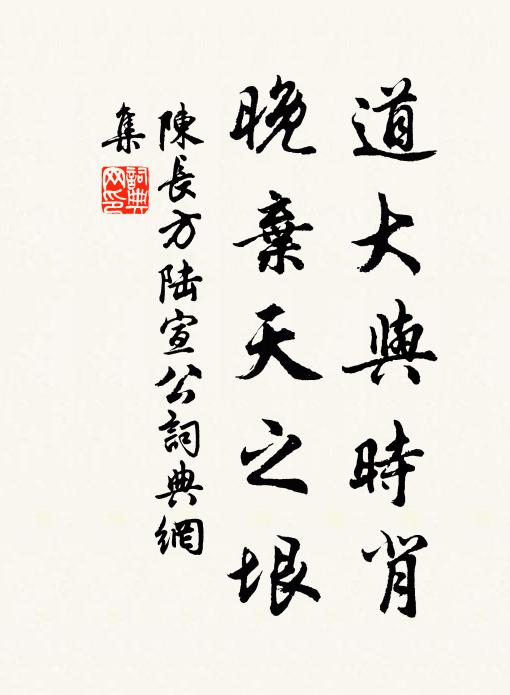 道大與時肖
晚棄天之垠
陳長方陸宣公詞典網
集
詞典網印